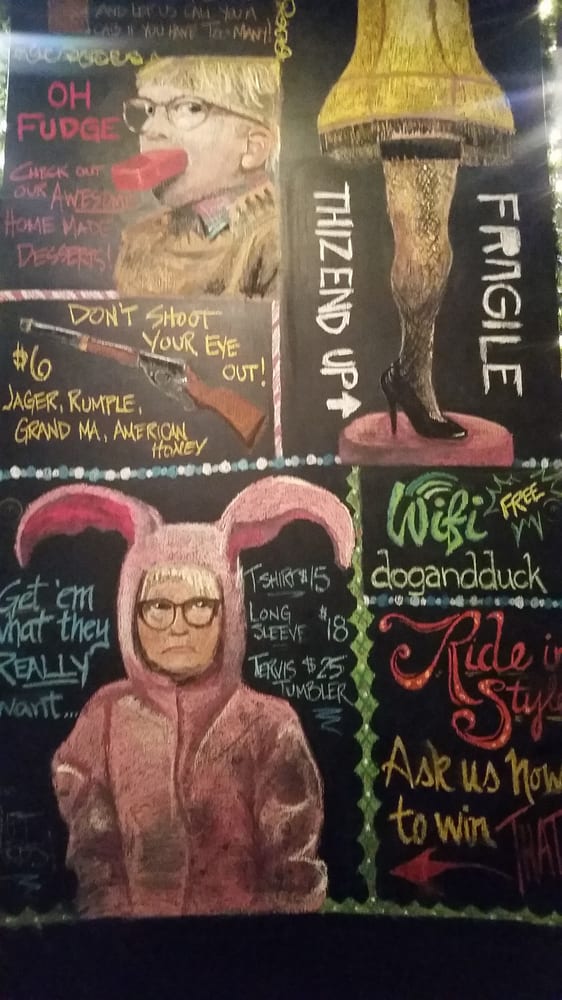 AND LET US CALL YOU A
CAB IF YOU HAVE TOO MANY!
OH
FUDGE
CHECK OUT
OUR AWESOME
HOME MADE
DESSERTS!
THIZ END UP
FRAGILE
DON'T SHOOT
YOUR EYE
OUT!
$6
JAGER, RUMPLE,
GRAND MA, AMERICAN
HONEY
Get 'em
what they
REALLY
want...
T SHIRT $15
LONG
SLEEVE $18
TERVIS $25
TUMBLER
Wifi
FREE
dogandduck
Ride in
Style
Ask us how
to win THAT